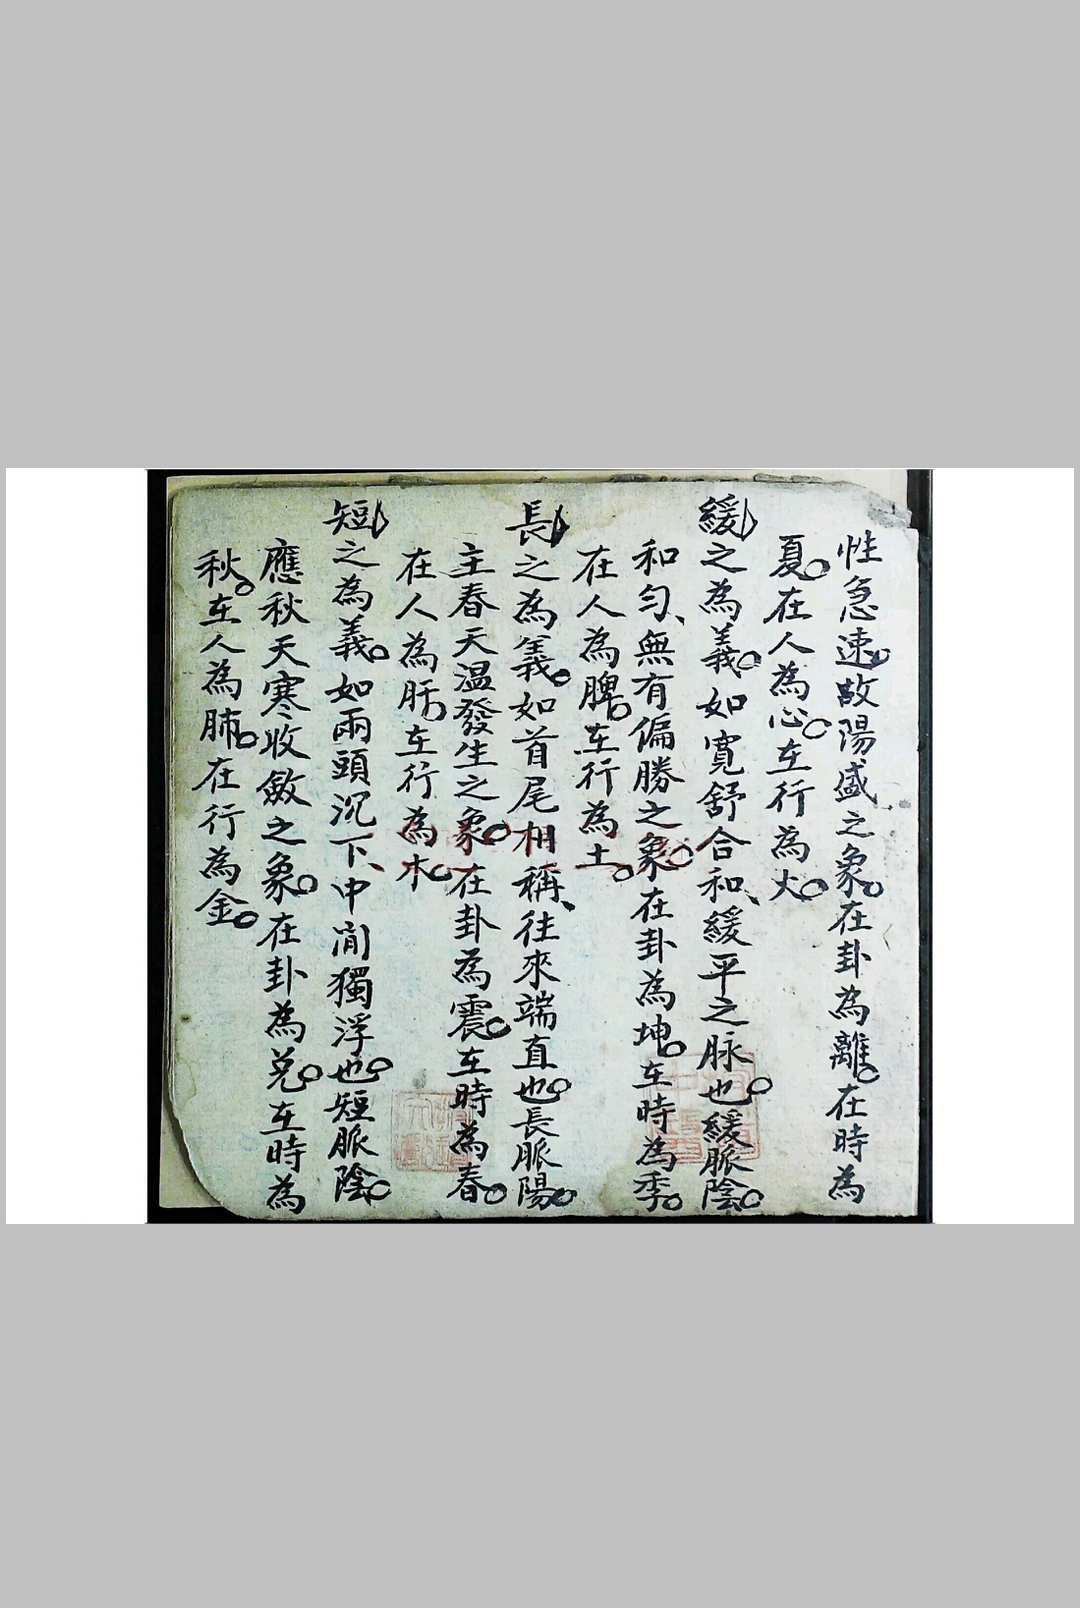 性急速。故陽盛之象。在卦為離。在時為
夏。在人為心。在行為火。
緩之為義。如寬舒合和、緩平之脉也。緩脈陰。
和匀、無有偏勝之象。在卦為坤。在時為季。
在人為脾。在行為土。
長之為義。如首尾相稱、往來端直也。長脈陽。
主春天温發生之象。在卦為震。在時為春。
在人為肝。在行為木。
短之為義。如兩頭沉下、中间獨浮也。短脈陰。
應秋天寒收斂之象。在卦為兑。在時為
秋。在人為肺。在行為金。